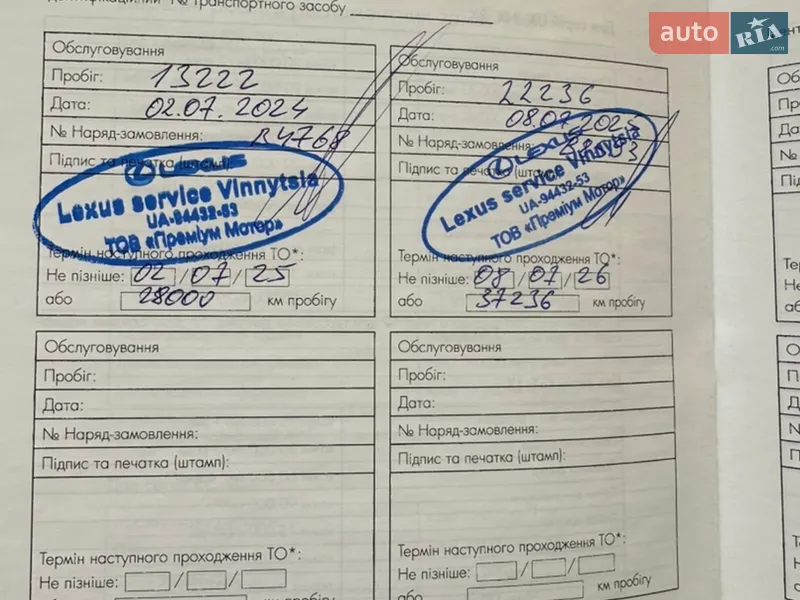 № транспортного засобу
auto RIA .com
Обслуговування
Пробіг: 13222
Дата: 02.07.2024
№ Наряд-замовлення: R4768
Підпис та печатка (штамп):
LEXUS
Lexus service Vinnytsia
UA-94432-53
ТОВ «Преміум Мотор»
Термін наступного проходження ТО*:
Не пізніше: 02/07/25
або 28000 км пробігу
Обслуговування
Пробіг: 22236
Дата: 08.07.2025
№ Наряд-замовлення:
Підпис та печатка (штамп):
LEXUS
Lexus service Vinnytsia
UA-94432-53
ТОВ «Преміум Мотор»
Термін наступного проходження ТО*:
Не пізніше: 08/07/26
або 37236 км пробігу
Обслуговування
Пробіг:
Дата:
№ Наряд-замовлення:
Підпис та печатка (штамп):
Термін наступного проходження ТО*:
Не пізніше: / /
Обслуговування
Пробіг:
Дата:
№ Наряд-замовлення:
Підпис та печатка (штамп):
Термін наступного проходження ТО*:
Не пізніше: / /
або км пробігу